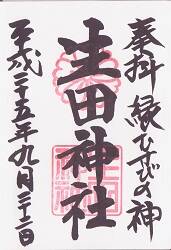 奉拝 縁むすびの神
生田神社
平成二十五年九月二十二日